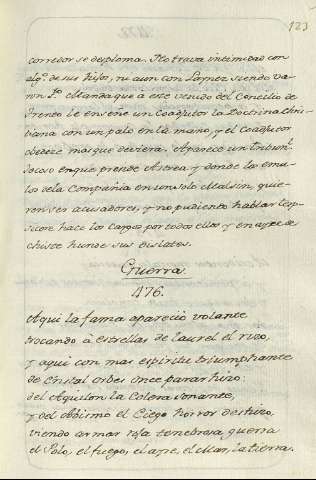 123
corredor se desploma. No trava intimidad con
alg.º de sus hijos, ni aun con Laynez siendo va-
ron D.º Manda que a este venido del Concilio de
Trento le enseñe un Coadjutor la Doctrina Chris-
tiana con un palo en la mano, y el Coadjutor
obedece mas que deviera. Aparece un tribun.l
Jocoso en que prende Astrea, y donde los emu-
los de la Compañia en un solo Malsin, quie-
ren ser acusadores, y no pudiendo hablar
hace los Cargos por todos ellos y en
chiste hunde sus dislates.
Guerra.
476.
Aqui la fama aparecio volante
trocando à estrellas de laurel el rizo,
y aqui con mas espiritu triumphante
de Cristal orbes once parar hizo:
del Aquilon la Colera sonante,
y del Abismo el Ciego horror deshizo,
viendo armar tenebrosa guerra
el Polo, el fuego, el ayre, el Mar, la tierra.